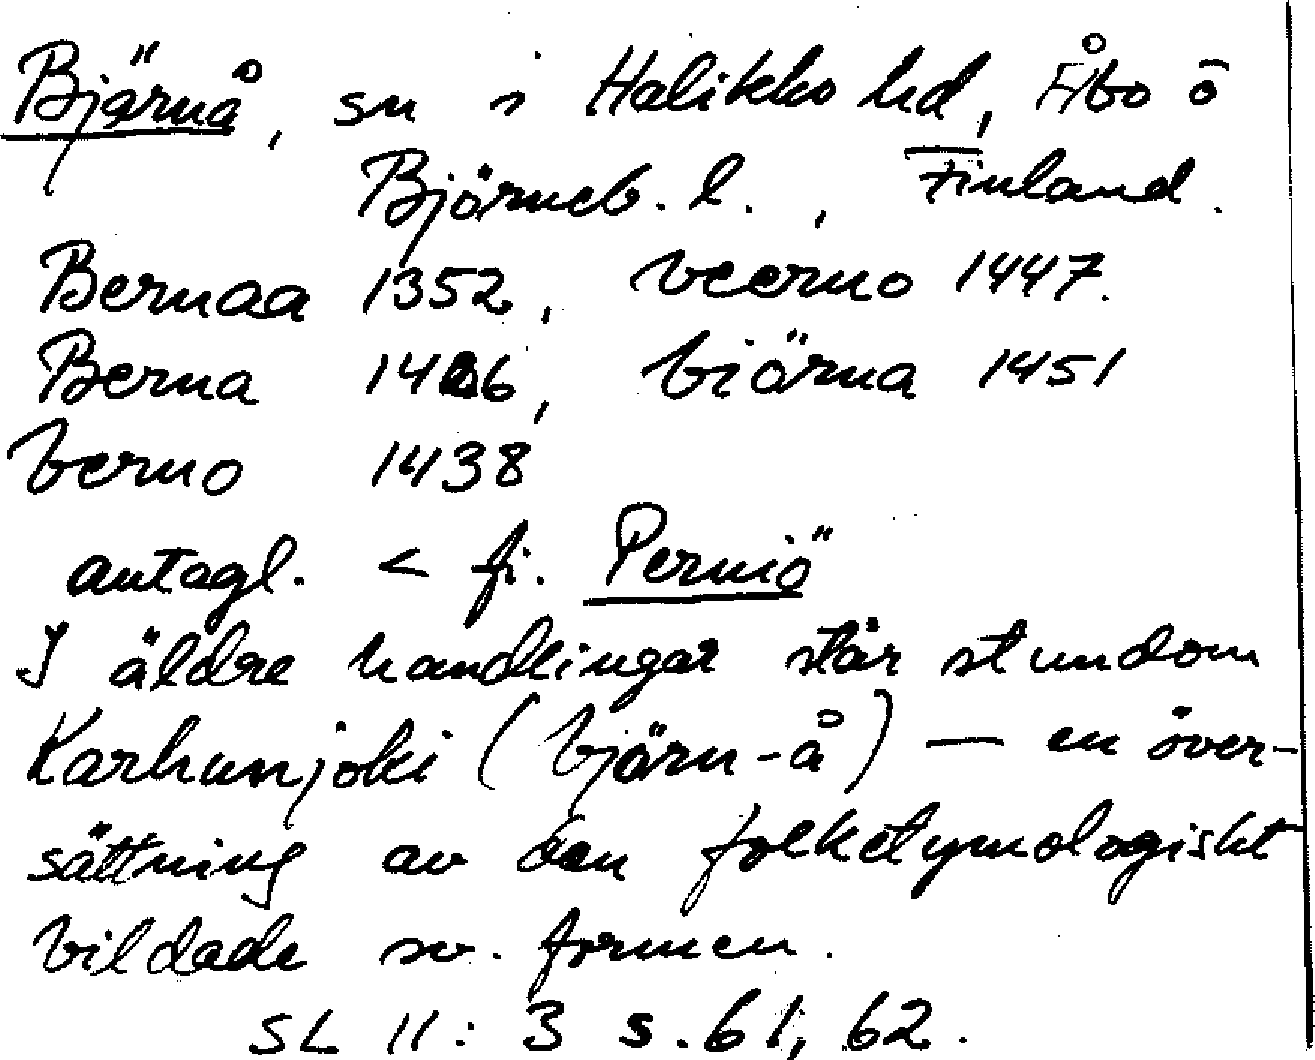 Bjärnå, sn i Halikko hd, Åbo o
Björneb. l., Finland.
Bernaa 1352, veerno 1447.
Berna 1406, biärna 1451
berno 1438
antagl. < fi. Perniö
I äldre handlingar står stundom
Karhunjoki (björn-å) — en över-
sättning av den folketymologiskt
bildade sv. formen.
SL II: 3 s. 61, 62.